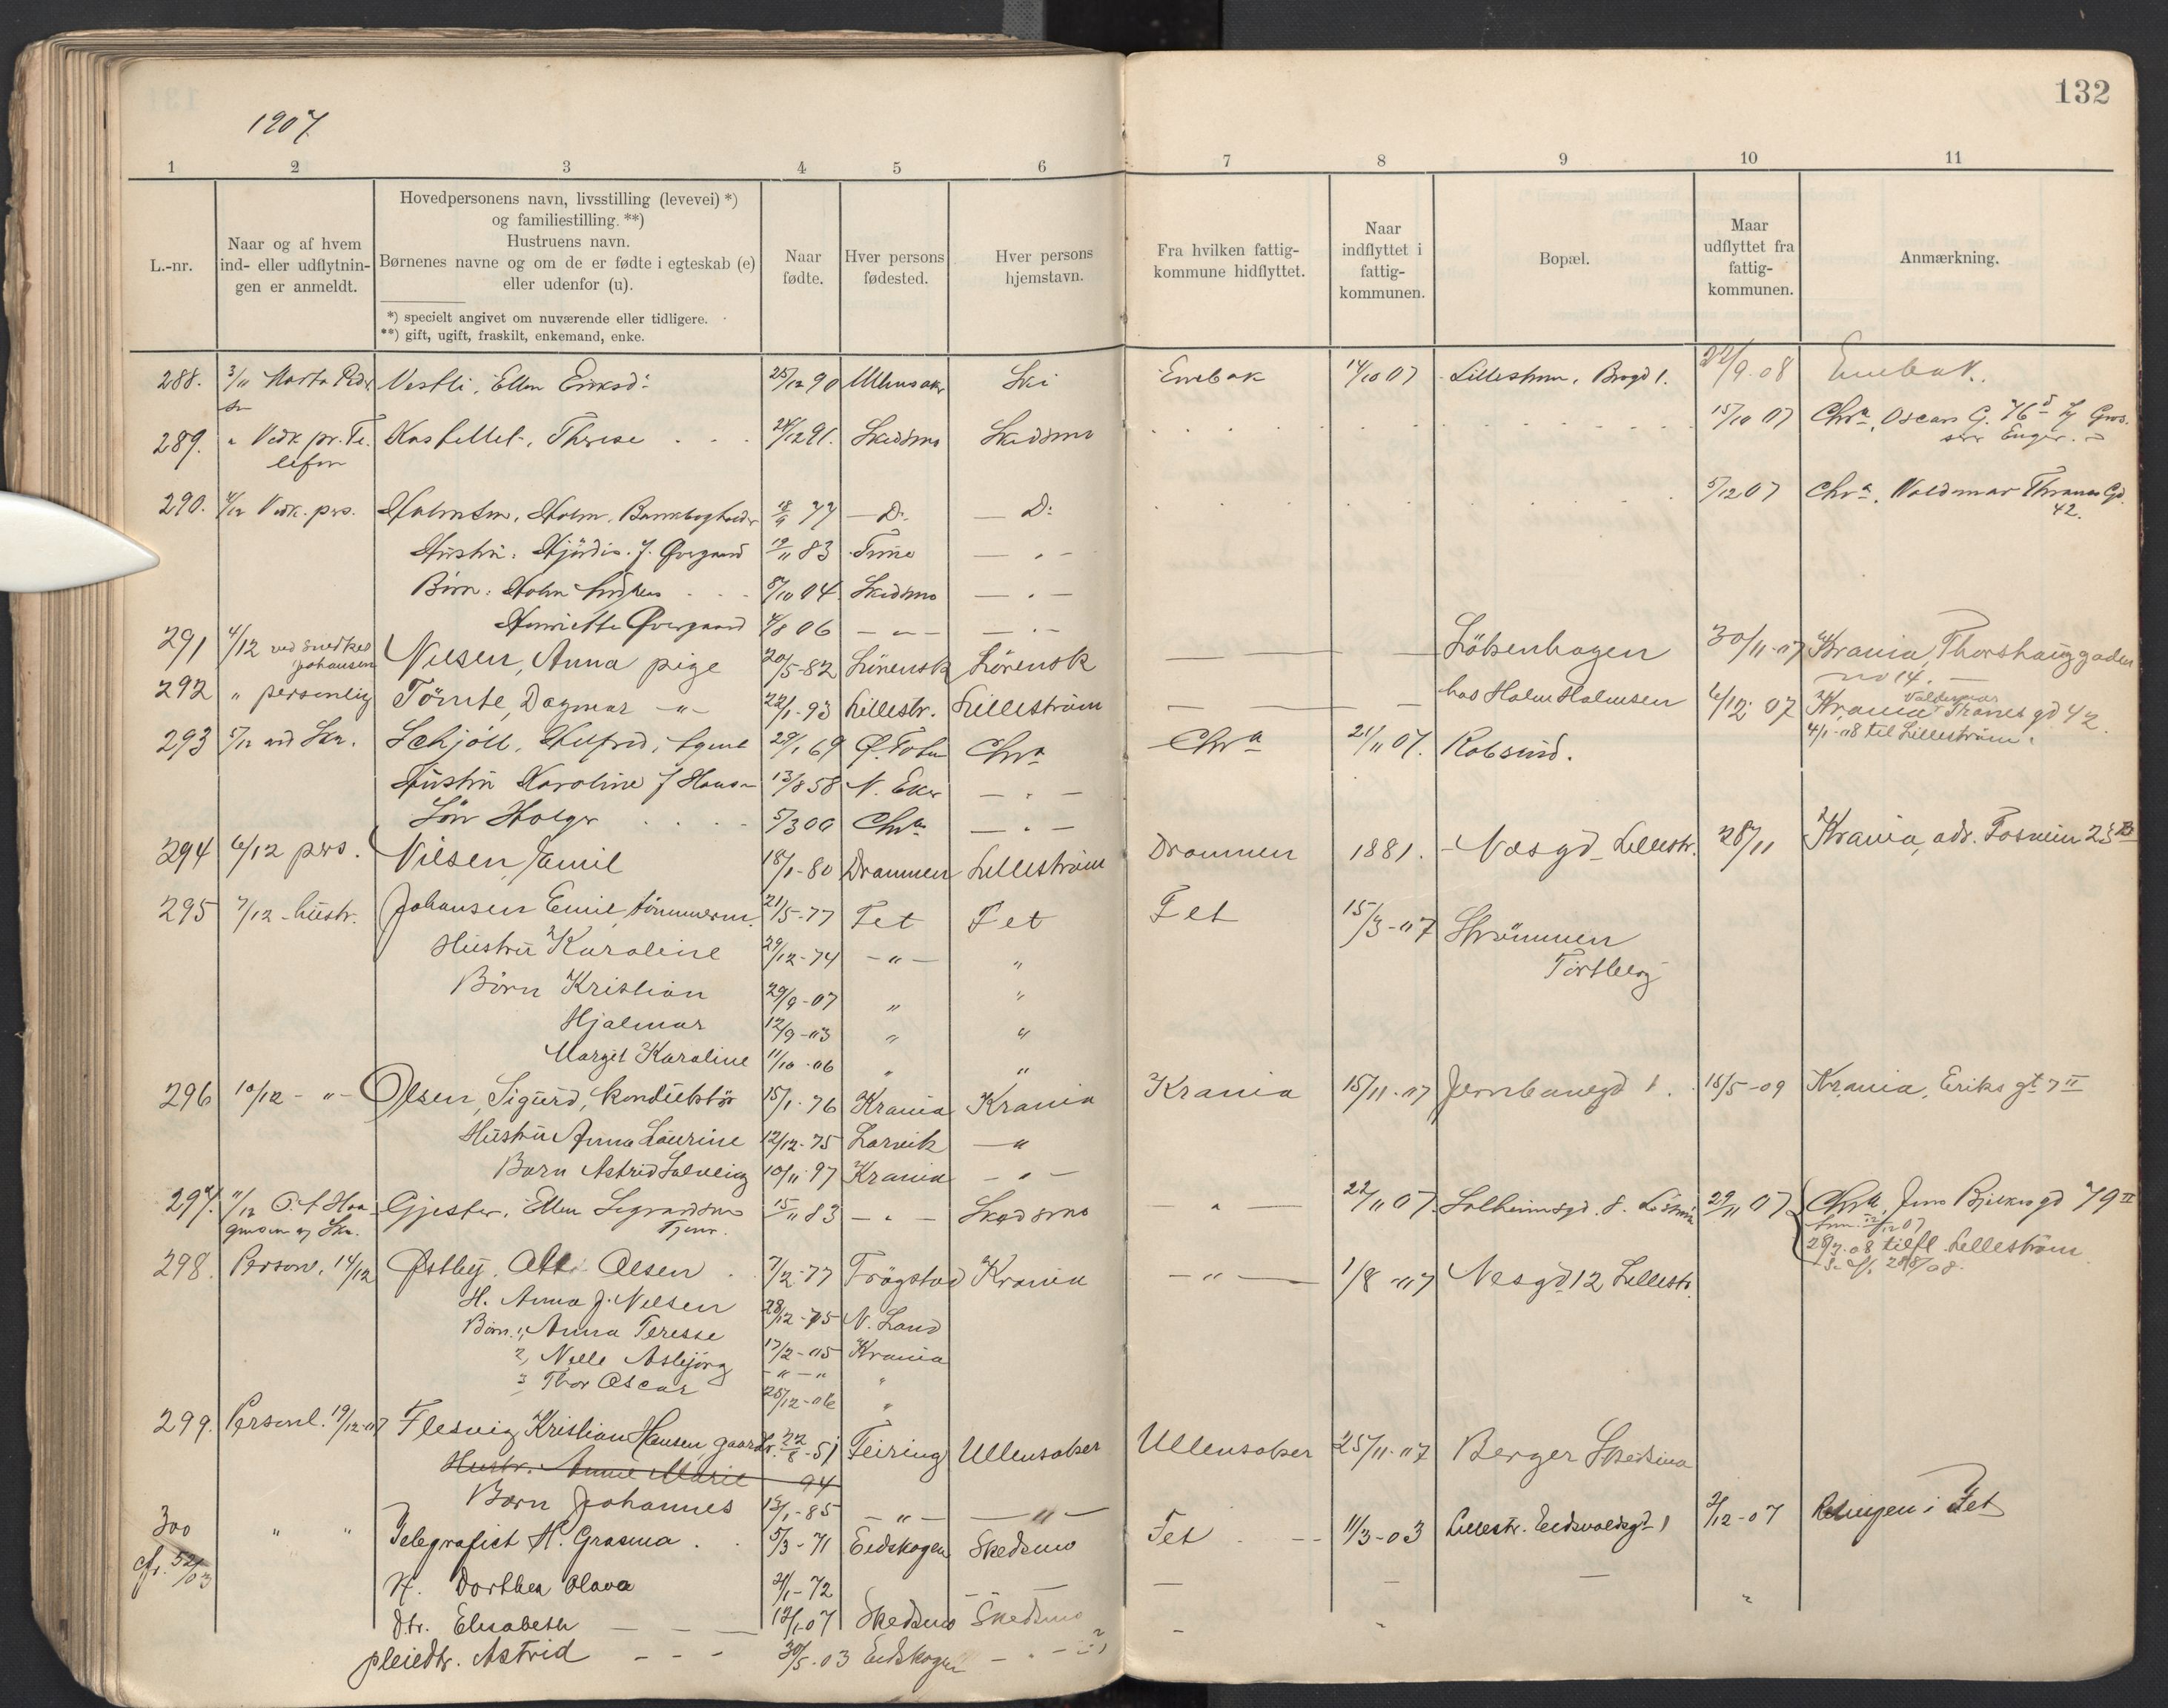 132
1907
1 2 3 4 5 6 7 8 9 10 11
L.-nr.
Naar og af hvem
ind- eller udflytnin-
gen er anmeldt.
Hovedpersonens navn, livsstilling (levevei) *)
og familiestilling. **)
Hustruens navn.
Børnenes navne og om de er fødte i egteskab (e)
eller udenfor (u).
*) specielt angivet om nuværende eller tidligere.
**) gift, ugift, fraskilt, enkemand, enke.
Naar
fødte.
Hver persons
fødested.
Hver persons
hjemstavn.
Fra hvilken fattig-
kommune hidflyttet.
Naar
indflyttet i
fattig-
kommunen.
Bopæl.
Maar
udflyttet fra
fattig-
kommunen.
Anmærkning.
288. 3/11 Vestli, Ellen Eriksd: 25/12 90 Ullensaker Ski Enebak 14/10 07 Lillestrøm, Brogd 1. 22/9-08 Enebak.
289. " Vedk pr. Te- Kastellet, Therese 24/12 91. Skedsmo Skedsmo 15/10 07 Chra, Oscars G. 76
lefon
290. 4/12 Vedk. pers. Holmsen, Holm, Bankbogholder 77 D: D: 5/12 07 Chra, Valdemar Thranes Gd.
42.
Hustru: Hjördis f. Øvergaard 19/11 83 Tune
Børn: Holm 8/10 04 Skedsmo
Henriette Øvergaard 4/8 06
291 4/12 ved snedker Johansen Nilsen, Anna pige 20/5-82 Lörensk Lörensk Löbenhagen 30/11-07 Krania, Thorshauggaden
no 14.
292 " personlig Tömte, Dagmar -"- 22/1-93 Lillestr. Lilleström hos Holm Holmsen 6/12 07 Krania Valdemar Tranes gd 42.
4/1-08 til Lilleström.
293 5/12 ved Skr. Schjöll, Hilfred, Agent 29/1 69 Ø. Toten Chra Chra 21/11 07. Robsrud.
Hustru Karoline f Hans- 13/8 58 N. Eker
Sön Holger 5/3 00 Chra
294 6/12 pers. Nilsen, Jamil 18/1-80 Drammen Lilleström Drammen 1881. Næsgd Lillestr. 28/11 Krania, adr.
295 7/12 hustr. Johansen Emil, tömmerm. 21/5-77 Fet Fet Fet 15/3-07 Strömmen
Hustru Karoline 29/12-74 -"- "
Börn Kristian 29/9-07 " "
Hjalmar 12/9-03 " "
Margit Karoline 11/10-06 " "
296 10/12 -"- Olsen, Sigurd, konduktör 15/1-76 Krania Krania Krania 15/11-07 Jernbanegd 1. 15/5-09 Krania, Eriks gt 7 II
Hustru Anna Laurine 12/12-75 Larvik -"
Barn Astrid Solveig 10/11-97 Krania -"-
297. 11/12 Gjester, Ellen Sigvardsen 15/11 83 -"- Skedsmo -"- 22/11 07. Solheimsgd. 8. 29/11 07 Chra, Jens Bjelkes gd 79 II
Tjene.
28/3-08 tilfl. Lilleström
298. Person. 14/12 Østby, Olsen 7/2-77 Trögstad Krania -"- 1/8-07 Nesgd 12 Lillestr.
H. Anna f. Nilsen 28/12-75 N. Land
Børn: 1, Anna Teresse 17/2-05 Krania
2, Nelle Asbjörg -"-"- "
3 Thor Oscar 25/12-06 "
299. Personl. 19/12-07 Flesvig, Kristian Hansen, gaardbr. 22/8-51 Feiring Ullensaker Ullensaker 25/11-07 Berger Skedsmo
Hustr. Anne Marie 94
Barn Johannes 13/1-85 -"- -"-
300 " " Telegrafist H. Grasmo 5/3-71 Eidskogen Skedsmo Fet 11/3-03 Lillestr. Eidsvoldsgt 1 2/12-07 Relingen i Fet
cfr. 52/03
H. Dorthea Olava 2/1-72
Dtr. Elisabeth 12/1-07 Skedsmo Skedsmo
pleiedtr. Astrid 30/5-03 Eidskogen